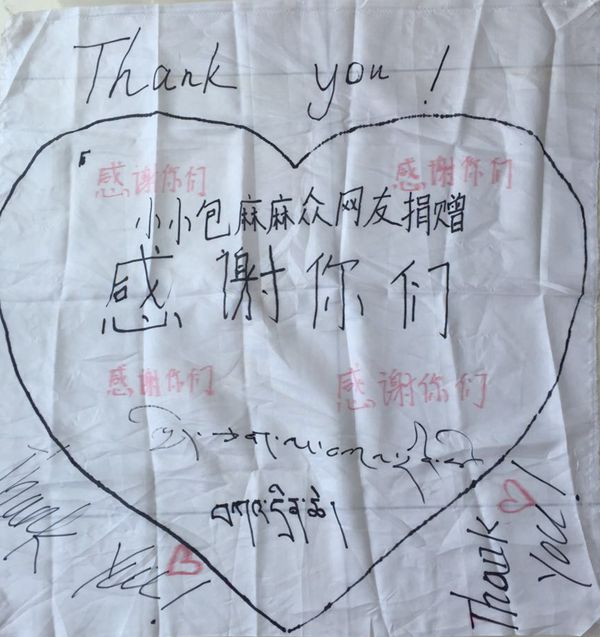 Thank you!
感谢你们 感谢你们
小小包麻麻众网友捐赠
感谢你们
感谢你们 感谢你们
བཀའ་དྲིན་ཆེ།
Thank You!
Thank You!